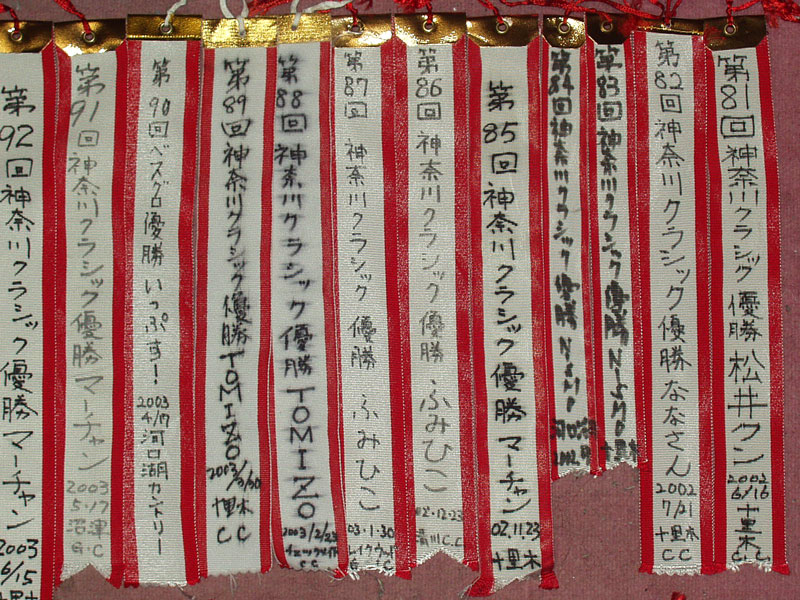 第81回神奈川クラシック 優勝 松井クン
2002
6/16
十里木
C.C
第82回神奈川クラシック優勝 ななさん
2002
7/21
十里木
CC
第83回神奈川クラシック優勝 NISMO
十里木
第84回神奈川クラシック優勝 NISMO
2002
第85回神奈川クラシック優勝 マーチャン
02.11.23
十里木
第86回神奈川クラシック優勝 ふみひこ
02.12.23
CC
第87回 神奈川クラシック 優勝 ふみひこ
03.1.30
レイクウッド
G.C
第88回神奈川クラシック優勝 TOMIZO
2003/2/23
CC
第89回神奈川クラシック優勝 TOMIZO
2003/3/30
十里木
CC
第90回ベスグロ優勝 いっぷす!
2003
4/17
河口湖カントリー
第91回神奈川クラシック優勝 マーチャン
2003
5.17
沼津
G.C
第92回神奈川クラシック優勝 マーチャン
2003
6/15
十里木